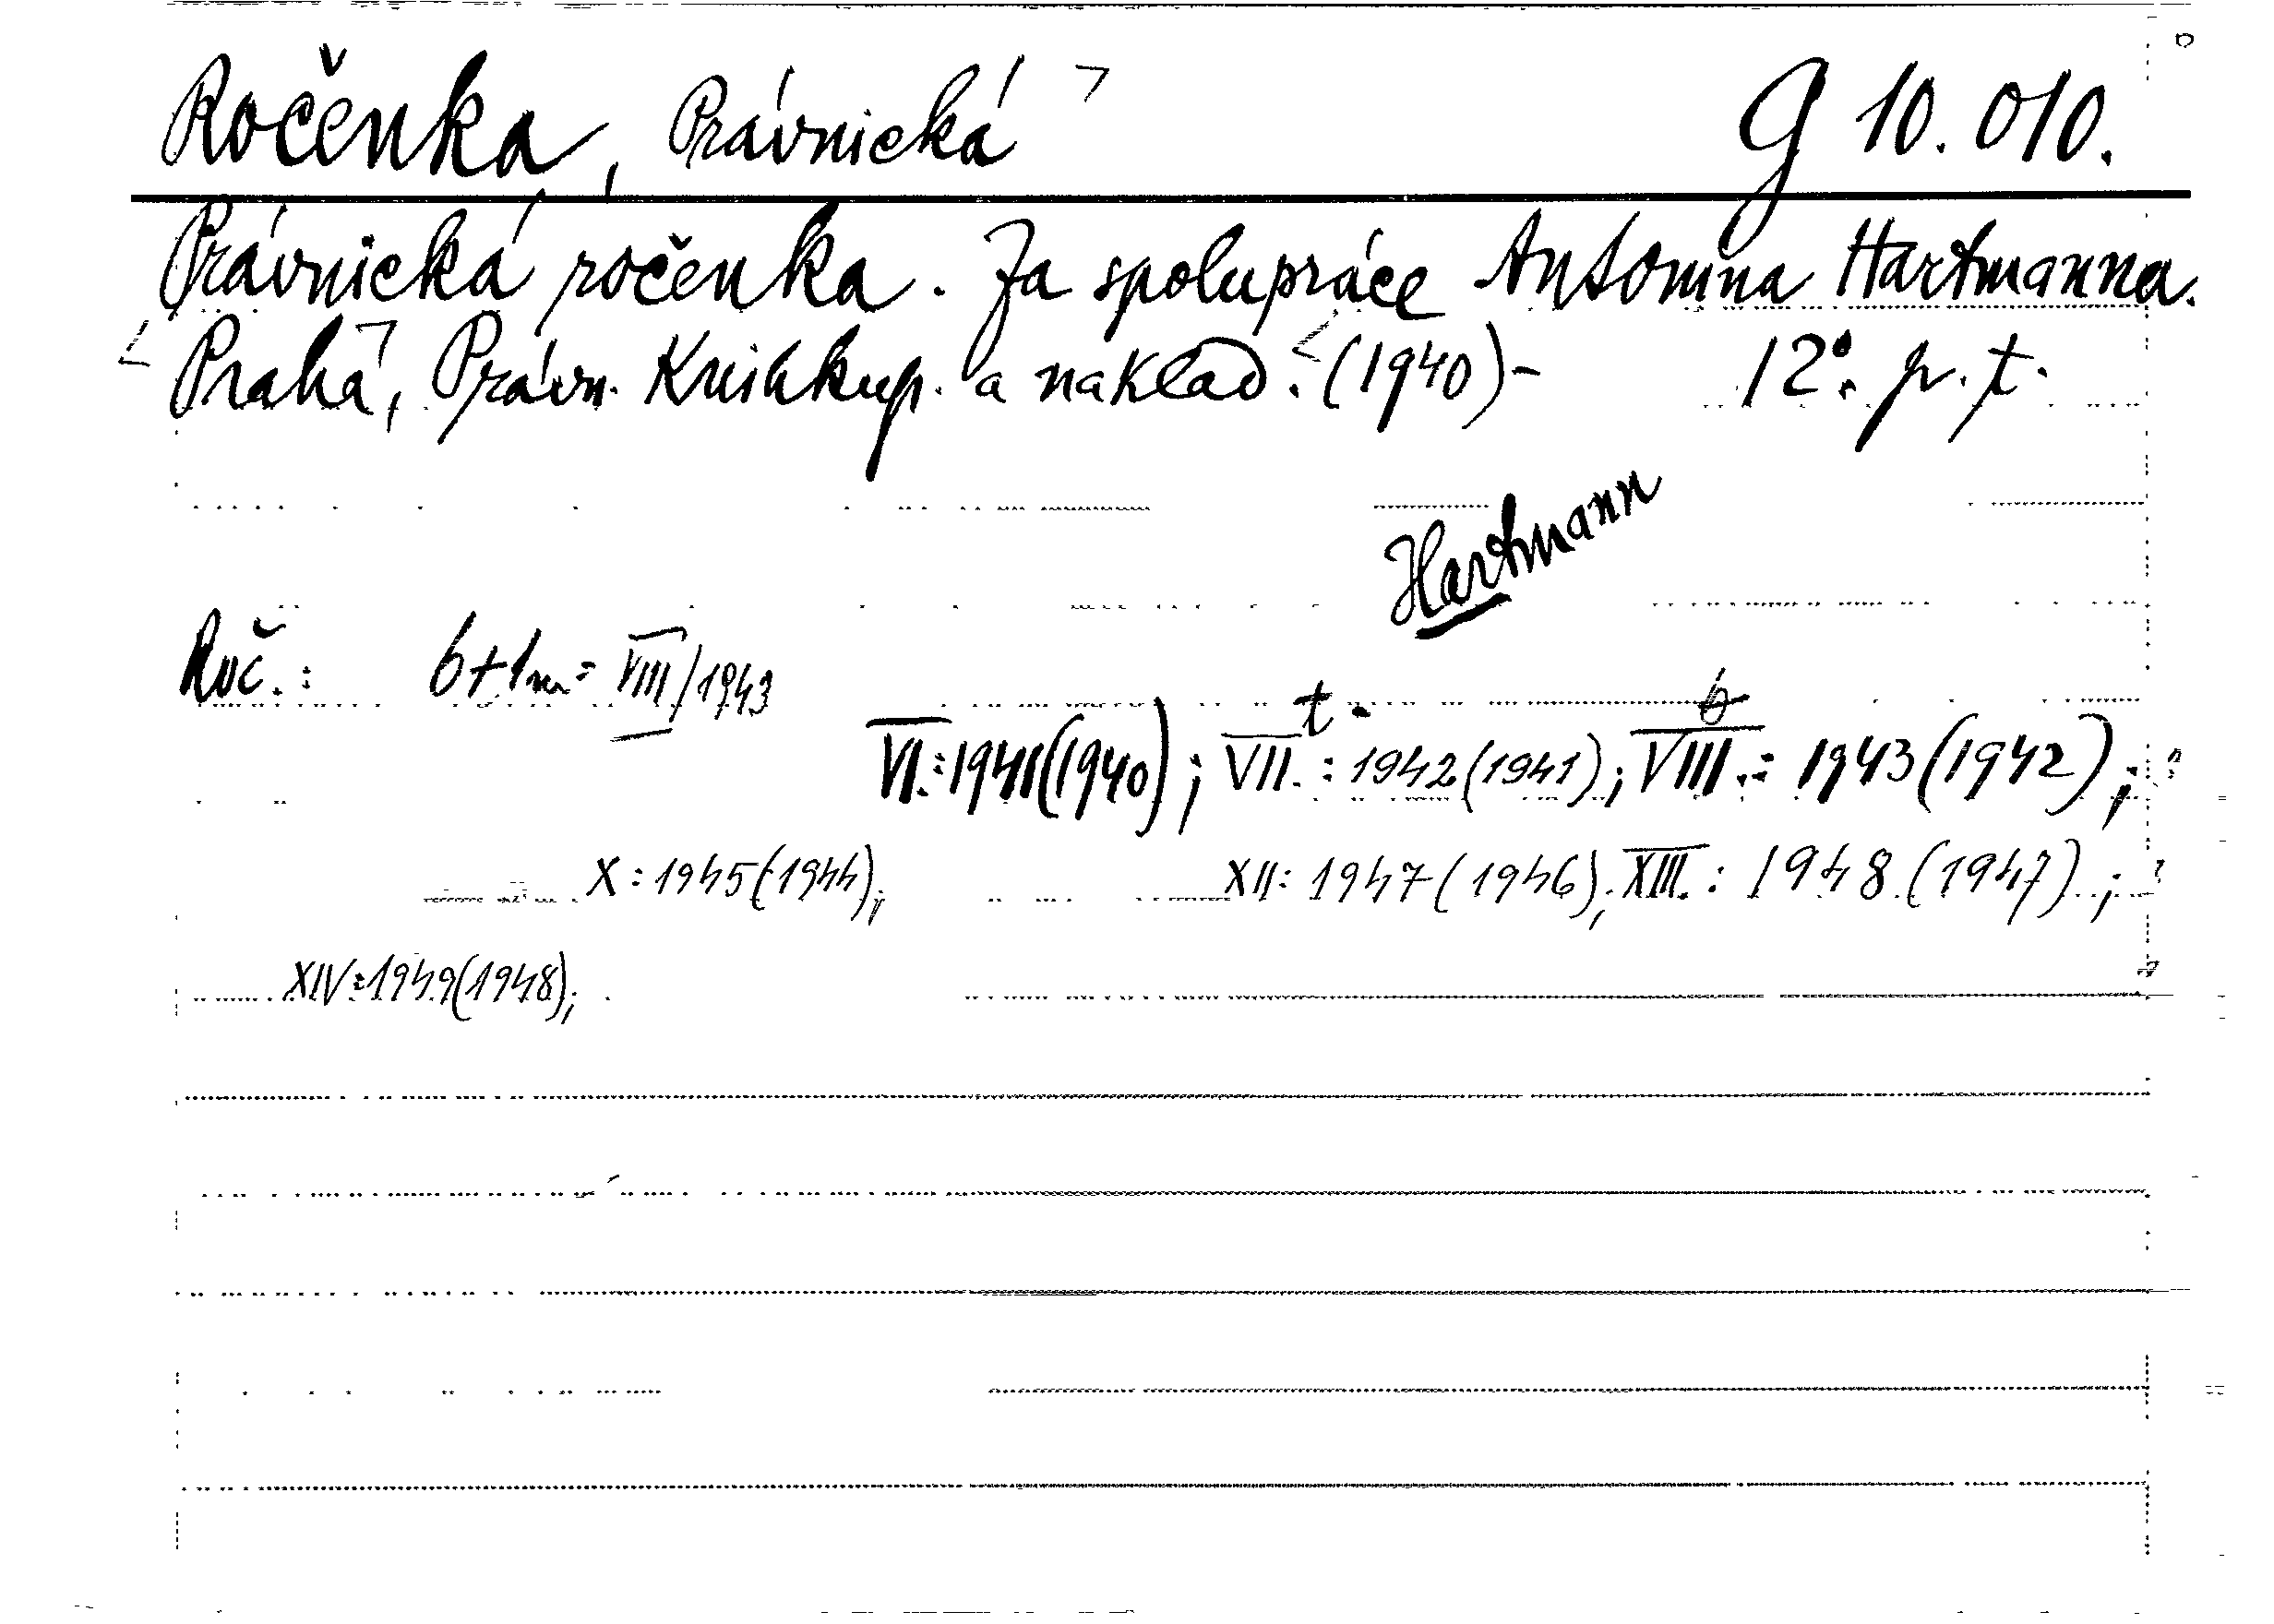 Ročenka, Právnická G 10.010.
Právnická ročenka. Za spolupráce Antonína Hartmanna.
Praha, Právn. Knihkup. a naklad. (1940)- 12°. p. t.
Hartmann
Roč.: b+1m= VIII/1943
t. b
VI.:1941(1940); VII.: 1942(1941); VIII.: 1943(1942);
X:1945(1944); XII: 1947(1946); XIII.: 1948(1947);
XIV:1949(1948);